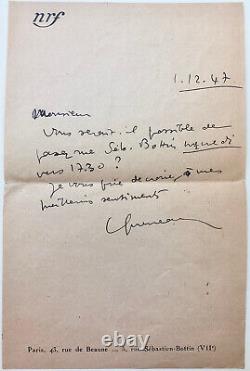 nrf
1.12.47
Monsieur
Vous serait-il possible de
passer rue Séb. Bottin
vers 17.30 ?
Je vous prie de croire à mes
meilleurs sentiments
Queneau
Paris, 43, rue de Beaune ... 5, rue Sébastien-Bottin (VIIe)